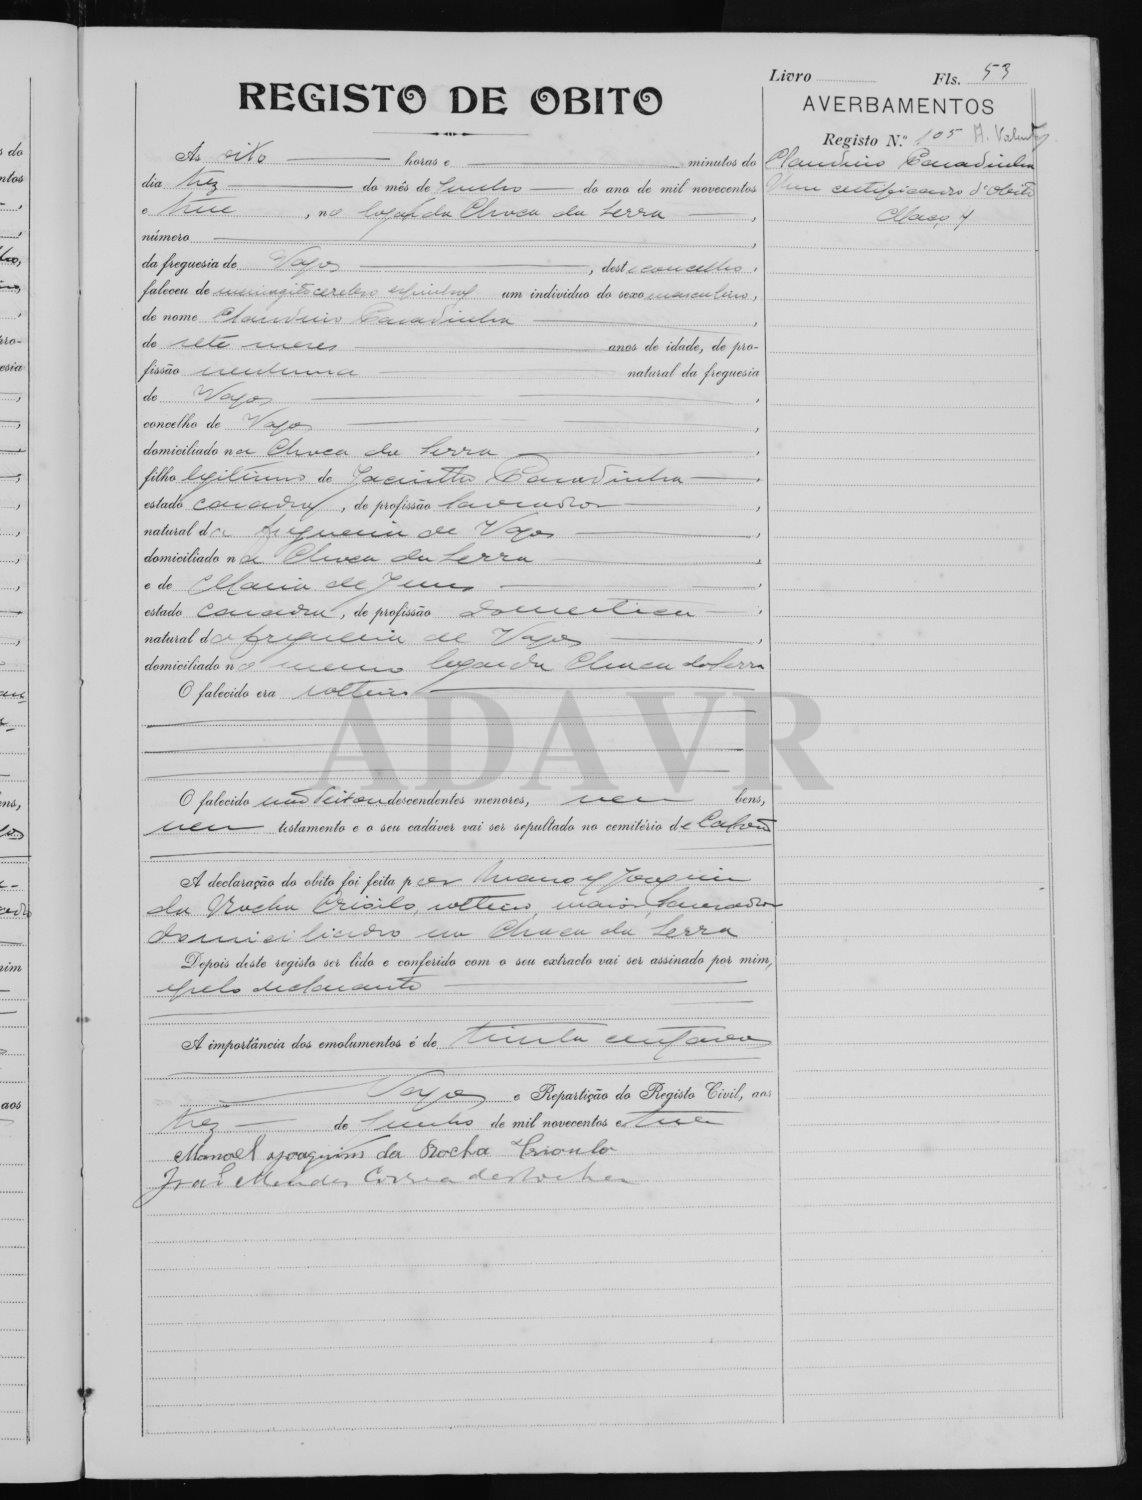 Livro Fls. 53
REGISTO DE OBITO
AVERBAMENTOS
Registo N.º 105
As oito horas e minutos do
Claudino Canadinha
dia trez do mês de Junho do ano de mil novecentos
Um certificado d'obito
e treze, no logar da Choca da Serra,
Maço 4
número,
da freguesia de Vagos, deste concelho,
faleceu de meningite cerebro espinhal um individuo do sexo masculino,
de nome Claudino Canadinha,
de sete meses anos de idade, de pro-
fissão nenhuma natural da freguesia
de Vagos,
concelho de Vagos,
domiciliado na Choca da Serra,
filho legitimo de Jacintho Canadinha,
estado casado, de profissão lavrador,
natural da freguesia de Vagos,
domiciliado na Choca da Serra,
e de Maria de Jesus,
estado casada, de profissão domestica,
natural da freguesia de Vagos,
domiciliado no mesmo logar da Choca da Serra
O falecido era solteiro
ADAVR
O falecido não deixou descendentes menores, nem bens,
nem testamento e o seu cadáver vai ser sepultado no cemitério de
A declaração do obito foi feita por Manoel Joaquim
da Rocha, solteiro, maior, lavrador
domiciliado na Choca da Serra
Depois deste registo ser lido e conferido com o seu extracto vai ser assinado por mim,
e pelo declarante
A importância dos emolumentos é de trinta centavos
Vagos e Repartição do Registo Civil, aos
trez de Junho de mil novecentos e treze
Manoel Joaquim da Rocha
João Mendes Correia da Rocha